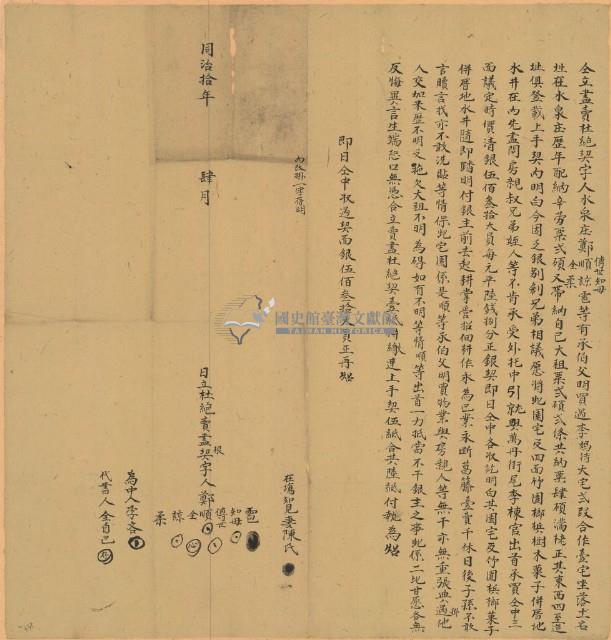 仝立盡賣杜絕契字人水泉庄鄭順諒世傳知母仝柔雹等有承伯父明買過李媽待大宅弍段合作壹宅坐落土名
址在水泉庄歷年配納辛勞粟弍碩又帶納自己大租粟弍碩弍條共納粟肆碩滿栳正其東西四至這
址俱登載上手契內明白今因乏銀別創兄弟相議愿將此園宅及四面竹圍梹榔樹木菓子併厝地
水井在內先盡問房親叔兄弟姪人等不肯承受外托中引就與萬丹街尾李棟官出首承買仝中三
面議定時價清銀伍佰叁拾大員每元平陸錢捌分正銀契即日仝中各收訖明白其園宅及竹圍梹榔菓子
併厝地水井隨即踏明付銀主前去起耕掌管招佃耕作永為己業永斷葛藤壹賣千休日後子孫不敢
言贖言找亦不敢洗貼等情保此宅園係是順等承伯父明買物業與房親人等無干亦無重張典過他
人交加來歷不明及拖欠大租不明為碍如有不明等情順等出首一力抵當不干銀主之事此係二比甘愿各無
反悔異言生端恐口無憑仝立賣盡杜絕契壹紙併繳連上手契伍紙合共陸紙付執為炤
即日仝中收過契面銀伍佰叁拾大員正再炤
內改掛一字存明
同治拾年 肆月 日立杜絕賣盡契根字人鄭順
雹
知母
傳世
諒
柔
在塲知見妻陳氏
為中人李各
代書人仝自己
國史館臺灣文獻館
TAIWAN HISTORICA